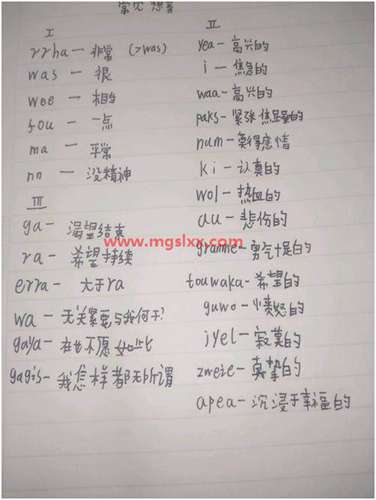 常见想音
I
rrha — 非常 (>was)
was — 很
wee — 相当
fou — 一点
ma — 平常
nn — 没精神
III
ga — 渴望结束
ra — 希望持续
erra — 大于ra
wa — 无关紧要与我何干?
gaya — 在也不愿如此
gagis — 我怎样都无所谓
II
yea — 高兴的
i — 焦急的
waa — 高兴的
paks — 紧张焦虑的
num — 莫得感情
ki — 认真的
wol — 热血的
au — 悲伤的
granme — 勇气十足的
touwaka — 希望的
guwo — 愤怒的
jyel — 寂寞的
zweie — 真挚的
apea — 沉浸于幸福的
www.mgslxx.com